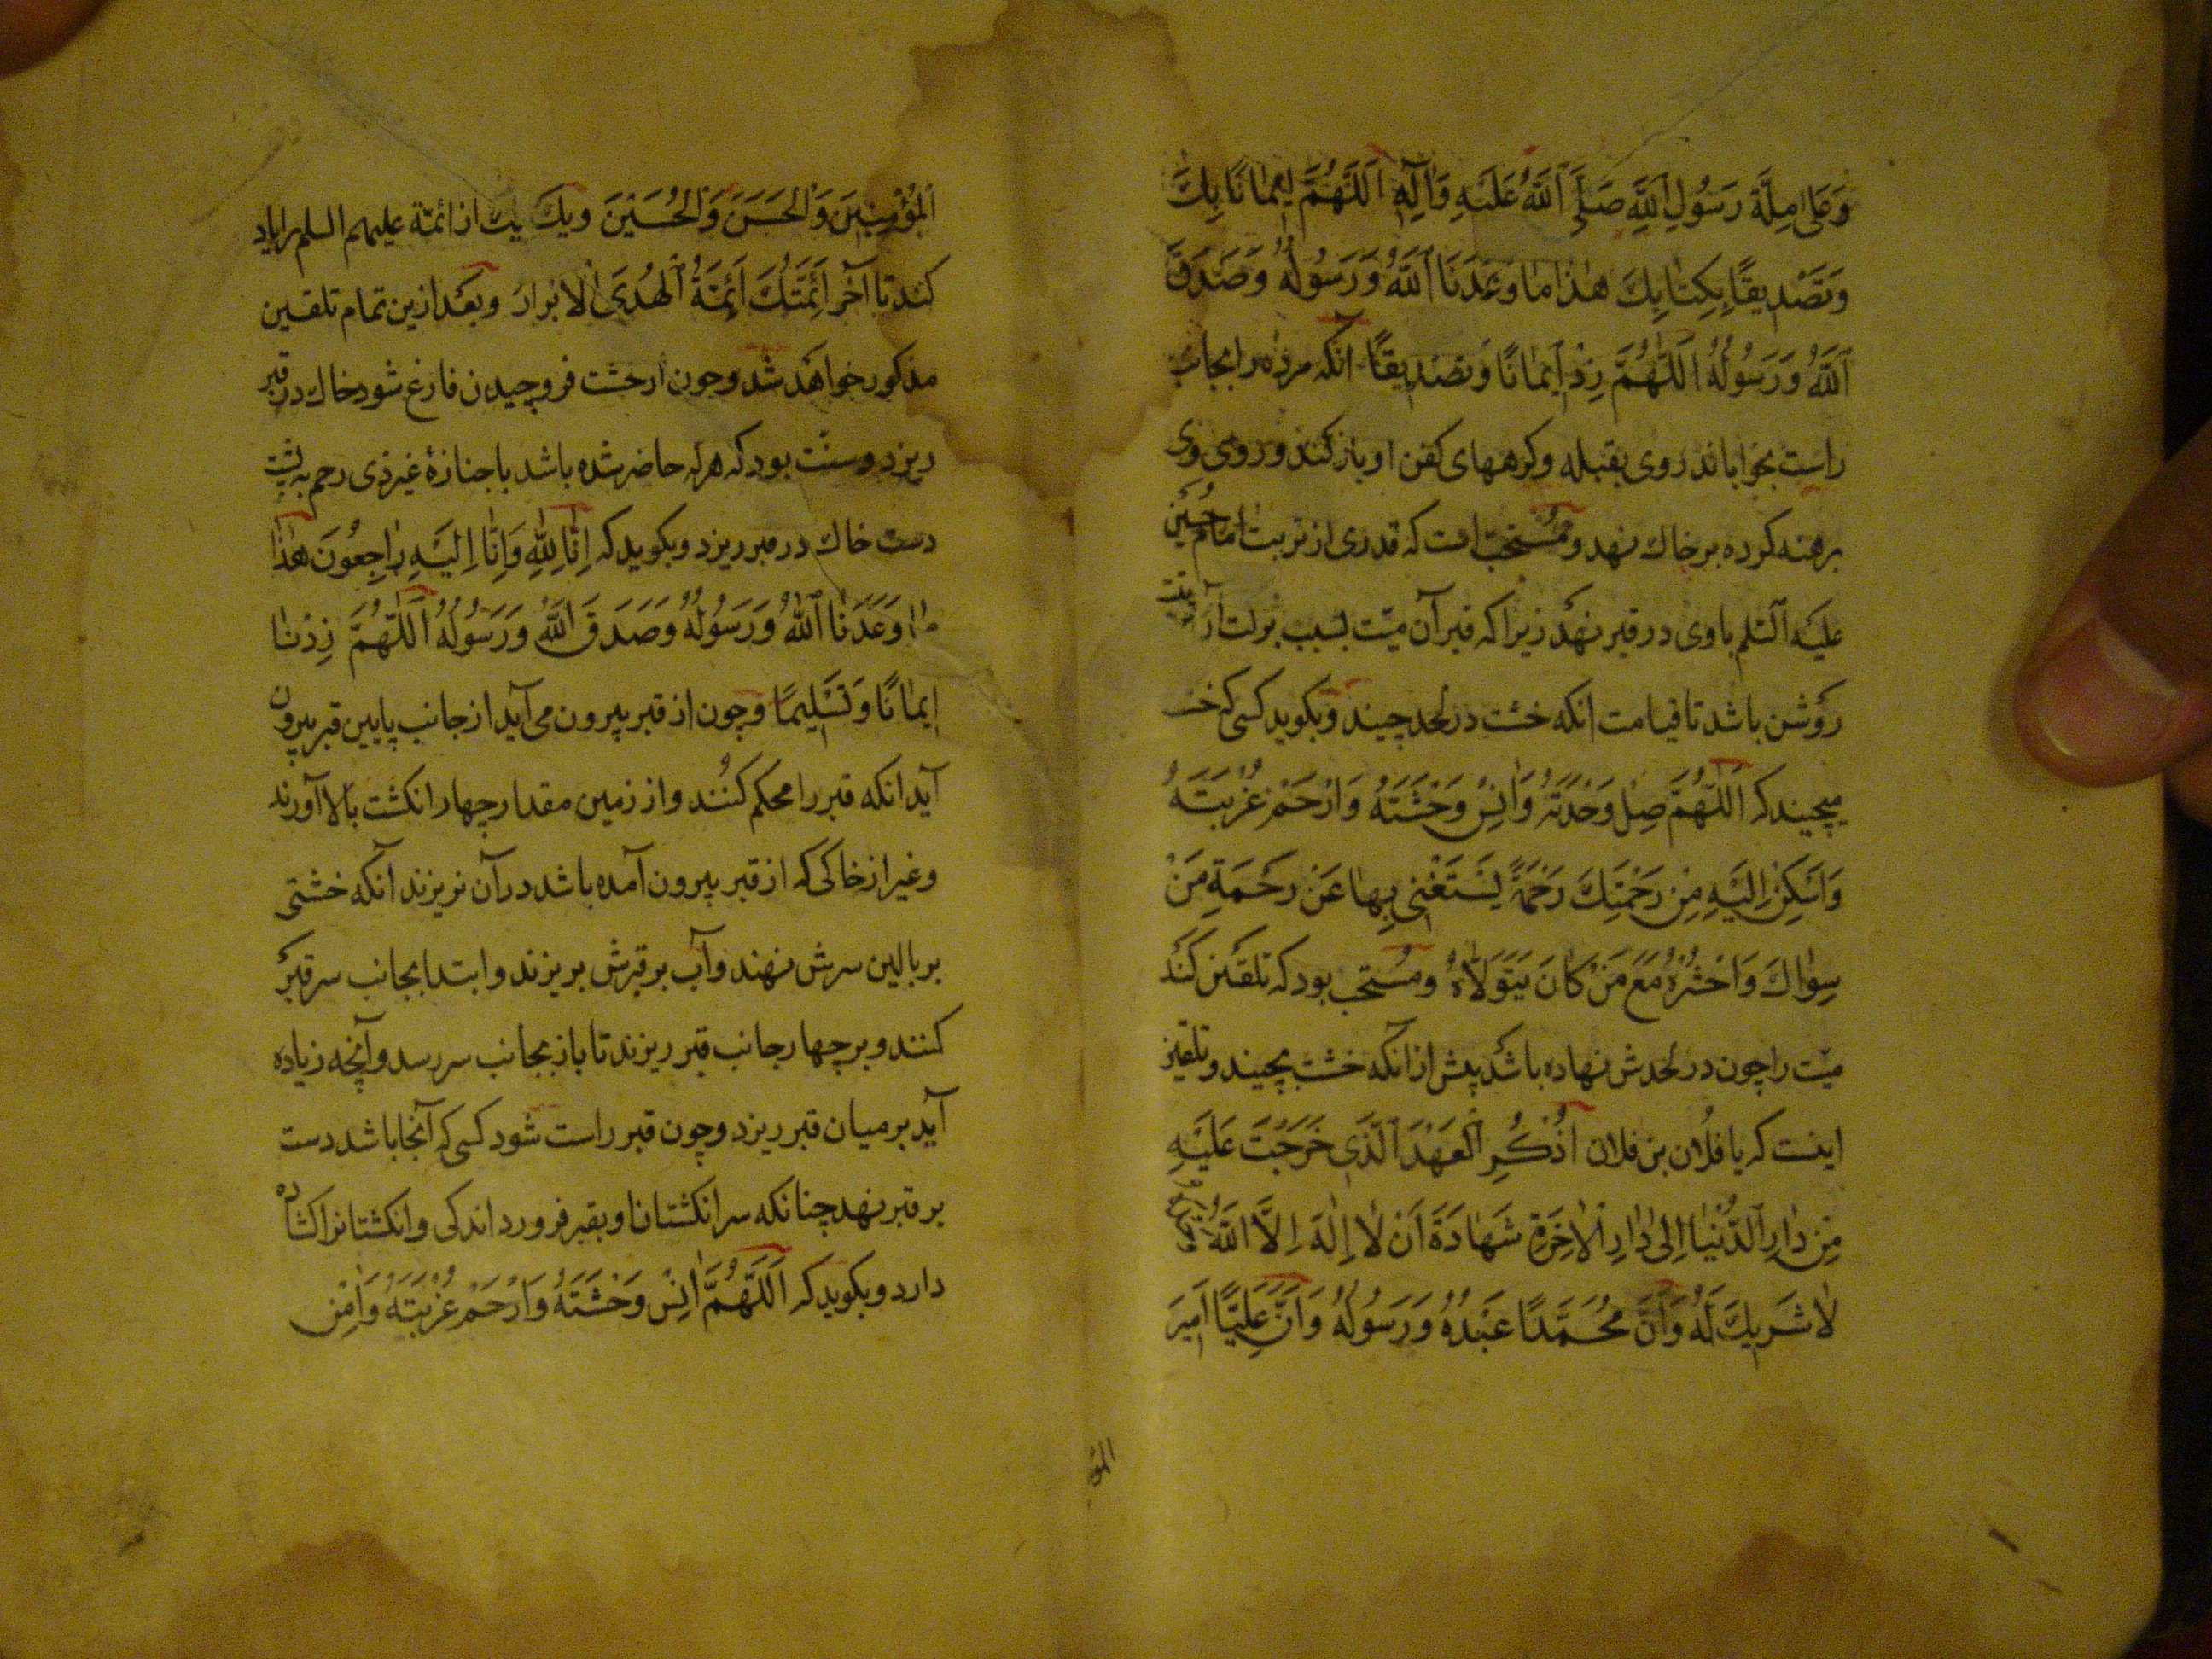 وَعَلىٰ مِلَّةِ رَسُولِ اللَّهِ صَلَّى اللَّهُ عَلَيْهِ وَآلِهِ اَللَّهُمَّ اِيمَانًا بِكَ
وَتَصْدِيقًا بِكِتَابِكَ هٰذَا مَا وَعَدَنَا اللَّهُ وَرَسُولُهُ وَصَدَقَ
اللَّهُ وَرَسُولُهُ اَللَّهُمَّ زِدْ اِيمَانًا وَتَصْدِيقًا آنکه مرده را بجانب
راست بخواباند روی بقبله وکرههای کفن او باز کند و روی وی
برهنه کرده بر خاک نهد و مُستحَب است که قدری از تربت امام حُسَین
علیه السلم با وی در قبر نهد زیرا که قبر آن میّت بسبب برکت آن تربت
روشن باشد تا قیامت آنکه خشت در لحد چیند و بکوید کسی که خشت
میچیند که اَللّٰهُمَّ صِلْ وَحْدَتَهُ وَاٰنِسْ وَحْشَتَهُ وَارْحَمْ غُرْبَتَهُ
وَاَسْكِنْ اِلَيْهِ مِنْ رَحْمَتِكَ رَحْمَةً يَسْتَغْنِي بِهَا عَنْ رَحْمَةِ مَنْ
سِوَاكَ وَاحْشُرْهُ مَعَ مَنْ كَانَ يَتَوَلَّاهُ و مُستحب بود که تلقین کنند
میّت را چون در لحدش نهاده باشد پیش از آنکه خشت بچینند و تلقین
اینست که یا فلان بن فلان اُذْكُرِ الْعَهْدَ الَّذِي خَرَجْتَ عَلَيْهِ
مِنْ دَارِ الدُّنْيَا اِلىٰ دَارِ الْاٰخِرَةِ شَهَادَةَ اَنْ لَا اِلٰهَ اِلَّا اللَّهُ
لَا شَرِيكَ لَهُ وَاَنَّ مُحَمَّدًا عَبْدُهُ وَرَسُولُهُ وَاَنَّ عَلِيًّا اَمِيرَ
المؤ
الْمُؤْمِنِينَ وَالْحَسَنَ وَالْحُسَيْنَ و یک یک از ائمّة علیهم السلم را یاد
کند تا آخر اَئِمَّتُكَ اَئِمَّةُ الْهُدَى الْاَبْرَارُ و بعد ازین تمام تلقین
مذکور خواهد شد و چون از خشت فرو چیدن فارغ شود خاک در قبر
ریزد و سنّت بود که هر که حاضر شده باشد با جنازۀ غیر ذی رحم به پشت
دست خاک در قبر ریزد و بکوید که اِنَّا لِلّٰهِ وَاِنَّا اِلَيْهِ رَاجِعُونَ هٰذَا
مَا وَعَدَنَا اللَّهُ وَرَسُولُهُ وَصَدَقَ اللَّهُ وَرَسُولُهُ اَللّٰهُمَّ زِدْنَا
اِيمَانًا وَتَسْلِيمًا و چون از قبر بیرون می آید از جانب پایین قبر بیرون
آید آنکه قبر را محکم کنند و از زمین مقدار چهار انکشت بالا آورند
و غیر از خاکی که از قبر بیرون آمده باشد در آن نریزند آنکه خشتی
بر بالین سرش نهند و آب بر قبرش بریزند و ابتدا بجانب سر قبر
کنند و بر چهار جانب قبر ریزند تا باز بجانب سر رسد و آنچه زیاده
آید بر میان قبر ریزد و چون قبر راست شود کسی که آنجا باشد دست
بر قبر نهد چنانکه سر انکشتان او بقبر فرو رود اندکی و انکشتانرا کشاده
دارد و بکوید که اَللّٰهُمَّ اٰنِسْ وَحْشَتَهُ وَارْحَمْ غُرْبَتَهُ وَاٰمِنْ